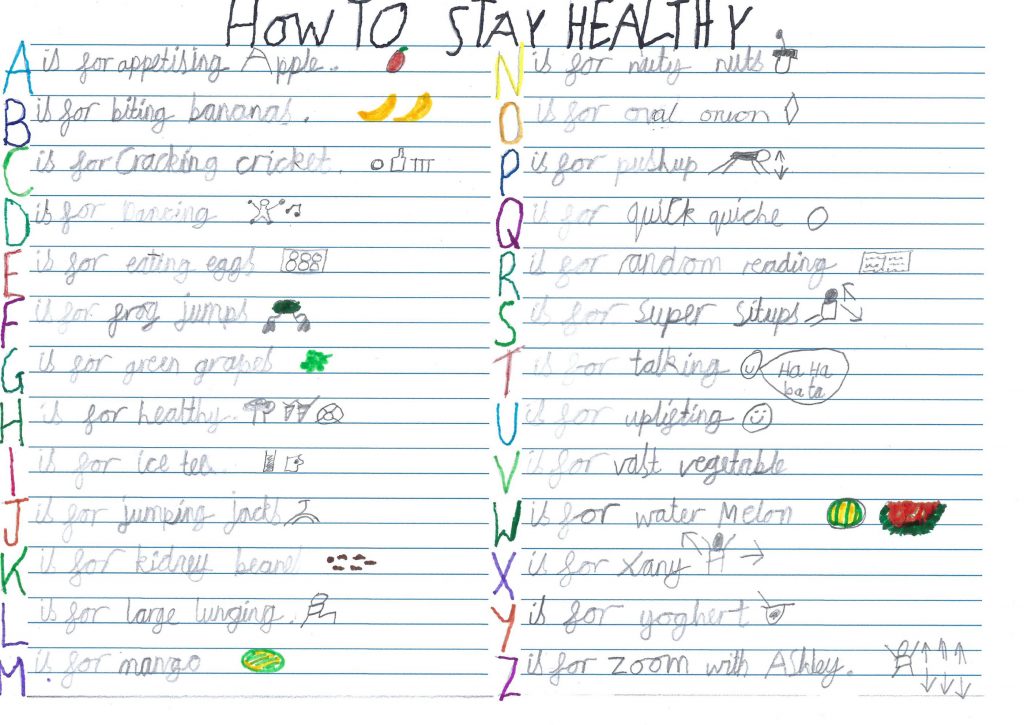 HOW TO STAY HEALTHY
A is for appetising Apple.
B is for biting bananas.
C is for Cracking cricket.
D is for Dancing
E is for eating eggs
F is for frog jumps
G is for green grapes
H is for healthy.
I is for ice tea.
J is for jumping jacks
K is for kidney beans
L is for large lunging.
M. is for mango
N is for nuty nuts
O is for oval onion
P is for pushup
Q is for quick quiche
R is for random reading
S is for super situps
T is for talking
Ha Ha
bata
U is for uplifting
V is for vast vegetable
W is for water Melon
X is for Xany
Y is for yoghert
Z is for zoom with Ashley.